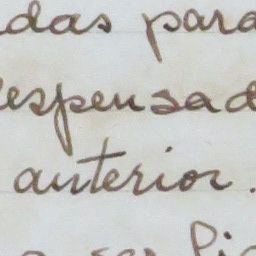 das para
espensad
anterior.